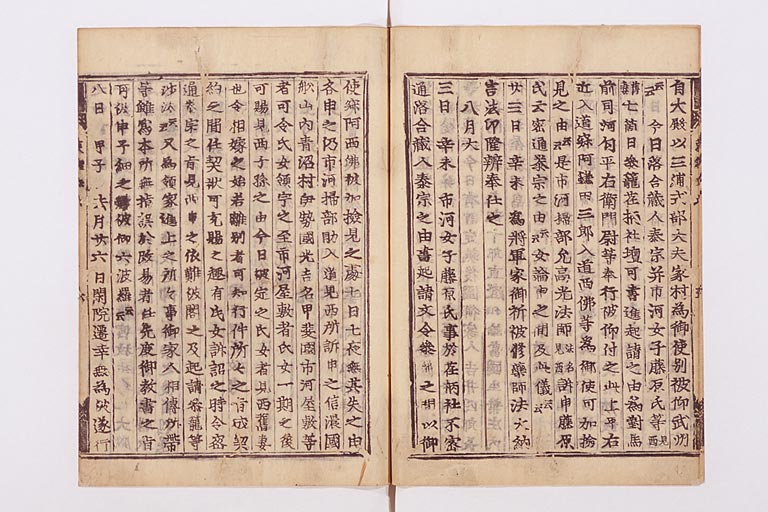 自大殿以三浦式部大夫家村為御使別被仰武州
云云 今日落合蔵人泰宗并市河女子藤原氏等
七箇日参籠荏柄社壇可書進起請之由為對馬
前司 平右衛門尉等奉行被仰付之此上平右
近入道 阿 因三郎入道西佛等為御使可加撿
見之由云云是市河掃部允高光法師 訴申藤原
氏云密通泰宗之由云云女論申之間及此儀云云
廿三日 辛未 為将軍家御祈被修藥師法大納
言法印隆辨奉仕之
八月大
三日 辛未 市河女子藤原氏事於荏柄社不密
通落合蔵人泰宗之由書起請文令参 之 以仰
使 阿西佛被加撿見之處七日七夜無其失之由
各申之仍市河掃部助入道見西所訴申之信濃國
舩山内青沼村伊勢國光吉名甲斐國市河屋敷等
者可令氏女領字之至市河屋敷者氏女一期之後
可賜見西子孫之由今日被定之氏女者見西舊妻
也令相嫁之始若離別者可知行件所々之旨成契
約之間任契状可充賜之趣有氏女訴訟之時令密
通泰宗之旨見西 申之依難被閣之及起請参籠等
沙汰云云又為領家進上之所役事御家人相傳所帯
等雖為本所無指誤於改易者任先度御教書之旨
可被申子細之 被仰六波羅云云
八日 甲子 六月廿六日閑院遷幸無為被遂行